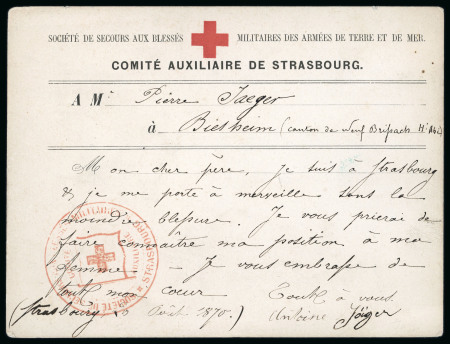 SOCIÉTÉ DE SECOURS AUX BLESSÉS MILITAIRES DES ARMÉES DE TERRE ET DE MER.
COMITÉ AUXILIAIRE DE STRASBOURG.
A Mr Pierre Jaeger
à Biesheim (canton de neuf Brisach
Mon cher père, je suis à Strasbourg
& je me porte à merveille sans la
moindre blessure. Je vous prierai de
faire connaître ma position à ma
femme – Je vous embrasse de
tout mon coeur Tout à vous
(Strasbourg Août 1870.) Antoine Jäger